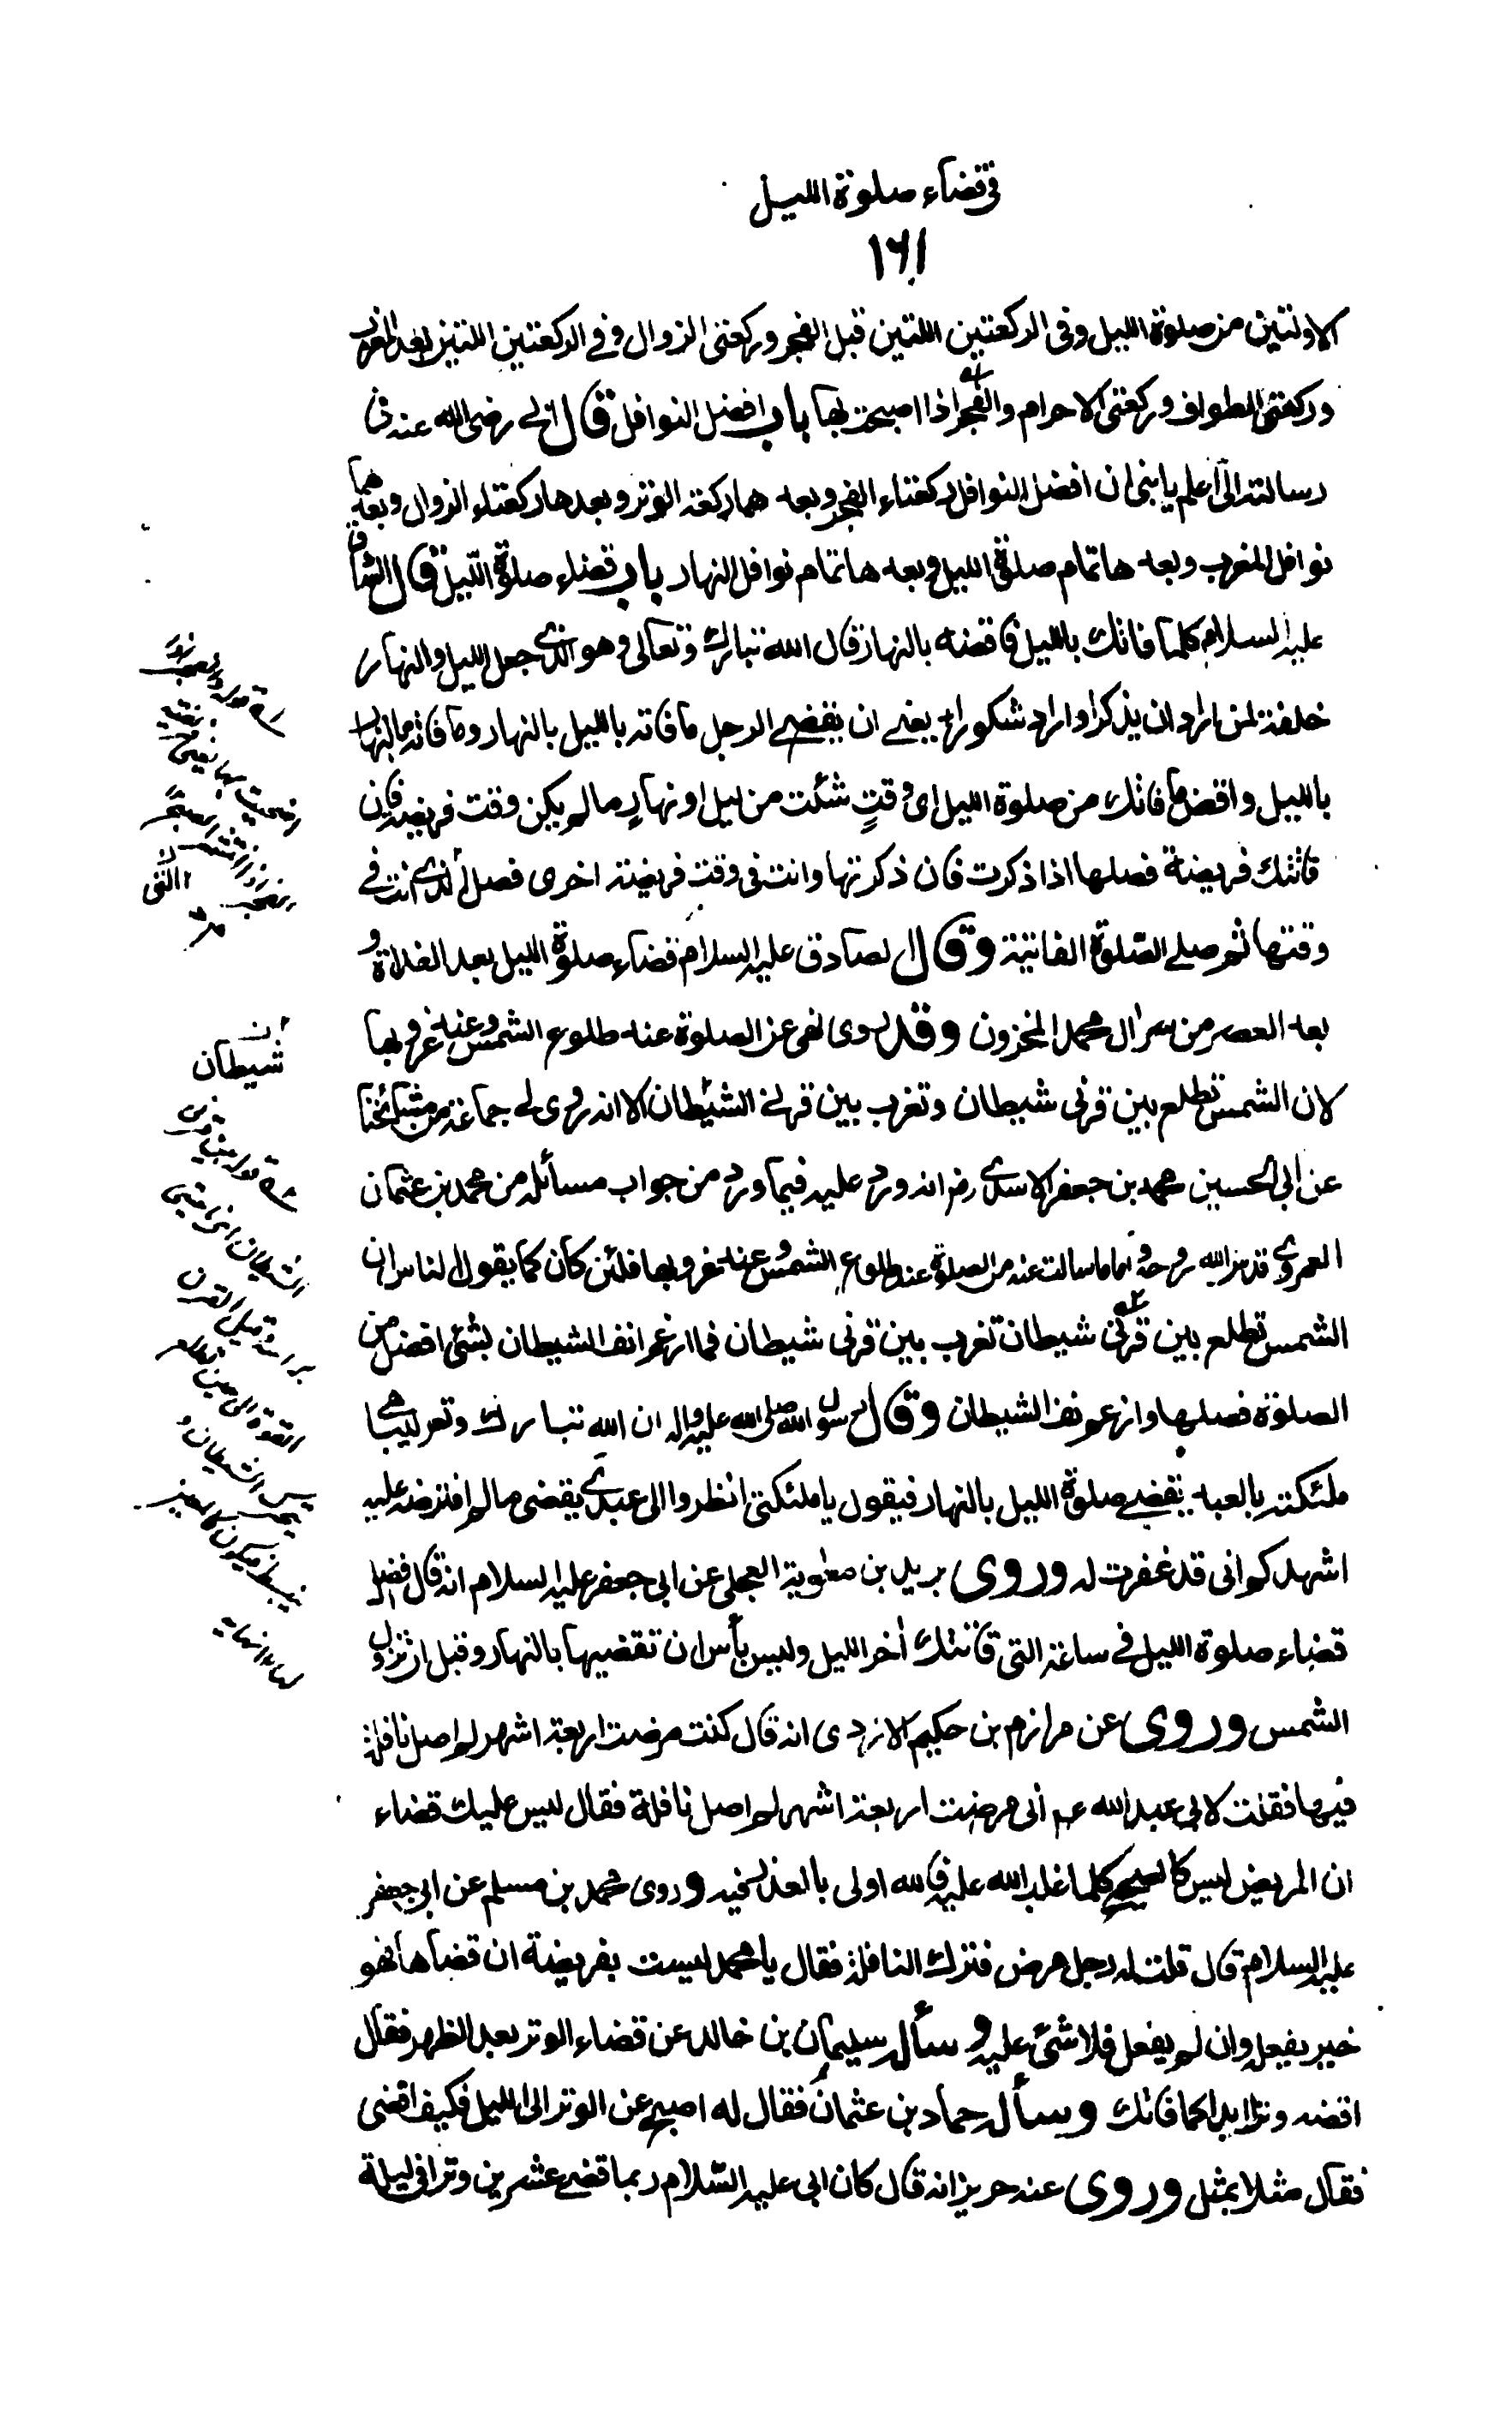 فى قضاء صلوة الليل
١٦١
الاولتين من صلوة الليل وفى الركعتين اللتين قبل الفجر وركعتى الزوال و فى الركعتين اللتين بعد المغرب
وركعتى الطواف وركعتى الاحرام والفجر اذا اصبحت بها باب افضل النوافل قال ابى رضى الله عنه فى
رسالته الىّ اعلم يا بنى ان افضل النوافل ركعتاء الفجر وبعدهما ركعة الوتر وبعدها ركعتاء الزوال وبعدهما
نوافل المغرب وبعدها تمام صلوة الليل وبعدها تمام نوافل النهار باب قضاء صلوة الليل قال الصادق
عليه السلام كلما فاتك بالليل فاقضه بالنهار قال الله تبارك وتعالى وهو الذى جعل الليل والنهار
خلفة لمن اراد ان يذكر او اراد شكورا يعنى ان يقضى الرجل ما فاته بالليل بالنهار وما فاته بالنهار
بالليل واقض ما فاتك من صلوة الليل اى وقتٍ شئت من ليل او نهارٍ ما لم يكن وقت فريضة فان
فاتتك فريضة فصلها اذا ذكرت فان ذكرتها وانت فى وقت فريضة اخرى فصل التى انت فى
وقتها ثم صلى الصّلوة الفائتة وقال الصادق عليه السلام قضاء صلوة الليل بعد الغداة و
بعد العصر من سر ال محمد المخزون وقد روى نهى عن الصلوة عند طلوع الشمس وعند غروبها
لان الشمس تطلع بين قرنى شيطان وتغرب بين قرنى الشيطان الا انه روى لى جماعة من مشائخنا
عن ابى الحسين محمد بن جعفر الاسدى رض انه ورد عليه فيما ورد من جواب مسائله من محمد بن عثمان
العمروى قدس الله روحه واما ما سالت عنه من الصلوة عند طلوع الشمس وعند غروبها فلئن كان كما يقول الناس ان
الشمس تطلع بين قرنى شيطان تغرب بين قرنى شيطان فما ارغم انف الشيطان بشئ افضل من
الصلوة فصلها وارغم نف الشيطان وقال رسول الله صلى الله عليه واله ان الله تبارك وتعالى ليباهى
ملئكته بالعبد يقضى صلوة الليل بالنهار فيقول يا ملئكتى انظروا الى عبدى يقضى مالم افترضه عليه
اشهدكم انى قد غفرت له وروى بريد بن معوية العجلى عن ابى جعفر عليه السلام انه قال افضل
قضاء صلوة الليل فى ساعة التى فاتتك اخر الليل وليس بأس ان تقضيها بالنهار وقبل ان تزول
الشمس وروى عن مرازم بن حكيم الازدى انه قال كنت مرضت اربعة اشهر لم اصل نافلة
فيها فقلت لابى عبدالله عم انى مرضت اربعة اشهر لم اصل نافلة فقال ليس عليك قضاء
ان المريض ليس كالصحيح كلما غلب الله عليه فالله اولى بالعذر فيه وروى محمد بن مسلم عن ابى جعفر
عليه السلام قال قلت له رجل مرض فترك النافلة فقال يا محمد ليست بفريضة ان قضاها فهو
خير يفعله وان لم يفعل فلا شئ عليه وسأل سليمان بن خالد عن قضاء الوتر بعد الظهر فقال
اقضه وترا ابدا كما فاتك وسأل حماد بن عثمان فقال له اصبح عن الوتر الى الليل فكيف اقضى
فقال مثلا بمثل وروى عنه حريز انه قال كان ابى عليه السّلام ربما قضى عشرين وترا فى ليلة
شيطان